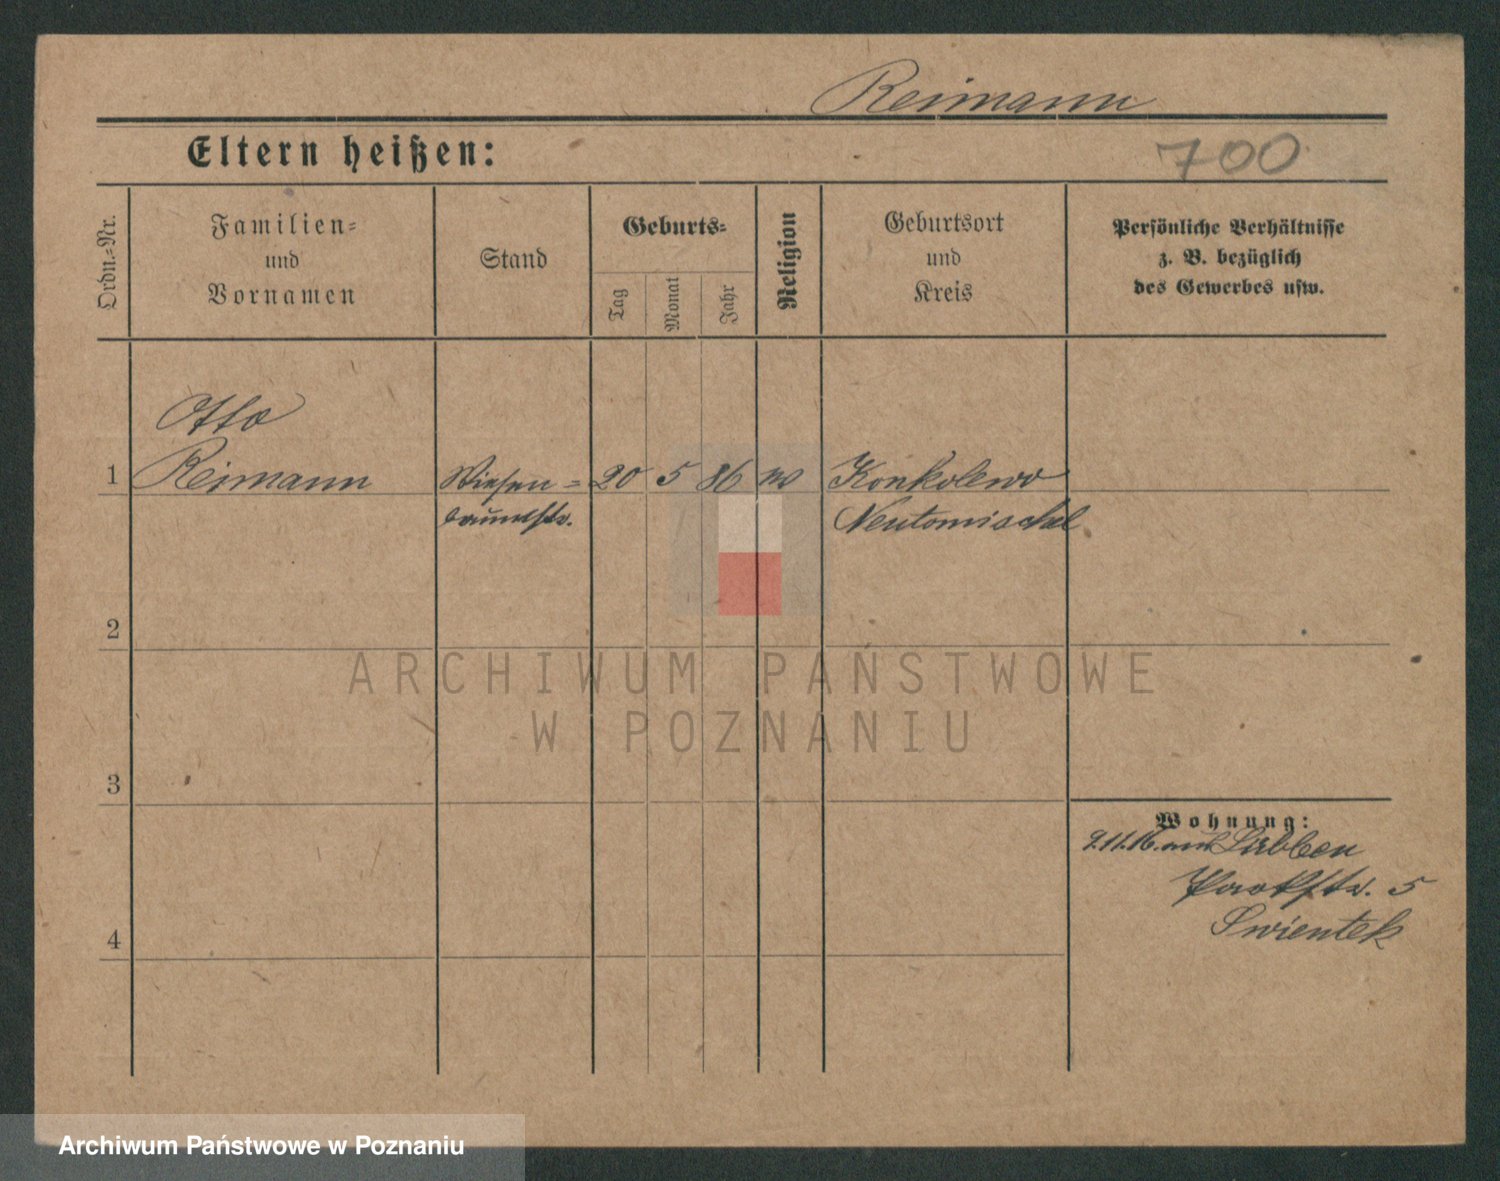 Reimann
Eltern heißen:
700
Ordn.-Nr.
Familien-
und
Vornamen
Stand
Geburts-
Tag
Monat
Jahr
Religion
Geburtsort
und
Kreis
Persönliche Verhältnisse
z. B. bezüglich
des Gewerbes usw.
Otto
1 Reimann Wiesen- 20 5 86 Konkolewo
Neutomischel
2
ARCHIWUM PAŃSTWOWE
W POZNANIU
3
Wohnung:
9.11.16. aus Lübben
Parkstr. 5
Swientek
4
Archiwum Państwowe w Poznaniu